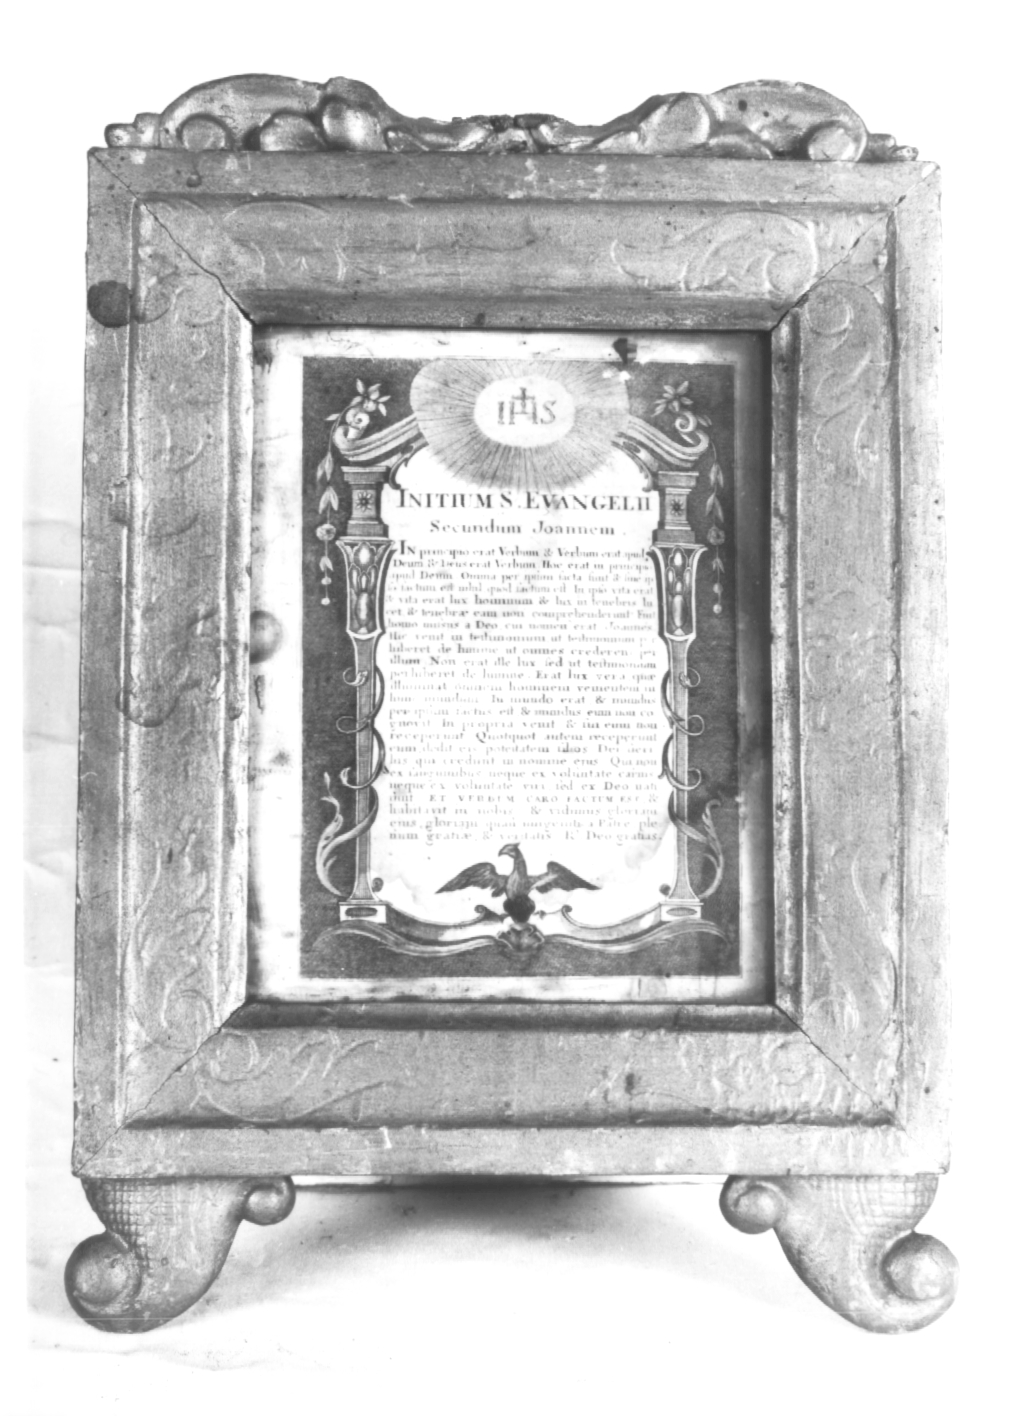 IHS
INITIUM S. EVANGELII
Secundum Joannem.
IN principio erat Verbum & Verbum erat apud
Deum & Deus erat Verbum. Hoc erat in principio
apud Deum. Omnia per ipsum facta sunt & sine ip
so factum est nihil quod factum est. In ipso vita erat
& vita erat lux hominum & lux in tenebris lu
cet & tenebræ eam non comprehenderunt. Fuit
homo missus a Deo cui nomen erat Joannes.
Hic venit in testimonium ut testimonium pe
hiberet de lumine ut omnes crederent per
illum Non erat ille lux sed ut testimonium
perhiberet de lumine. Erat lux vera quæ
illuminat omnem hominem venientem in
hunc mundum. In mundo erat & mundus
per ipsum factus est & mundus eum non co
gnovit In propria venit & sui eum non
receperunt Quotquot autem receperunt
eum dedit eis potestatem filios Dei fieri
his qui credunt in nomine ejus Qui non
ex sanguinibus neque ex voluntate carnis
neque ex voluntate viri sed ex Deo nati
sunt ET VERBUM CARO FACTUM EST &
habitavit in nobis & vidimus gloriam
ejus gloriam quasi unigeniti a Patre ple
num gratiæ, & veritatis R. Deo gratias.